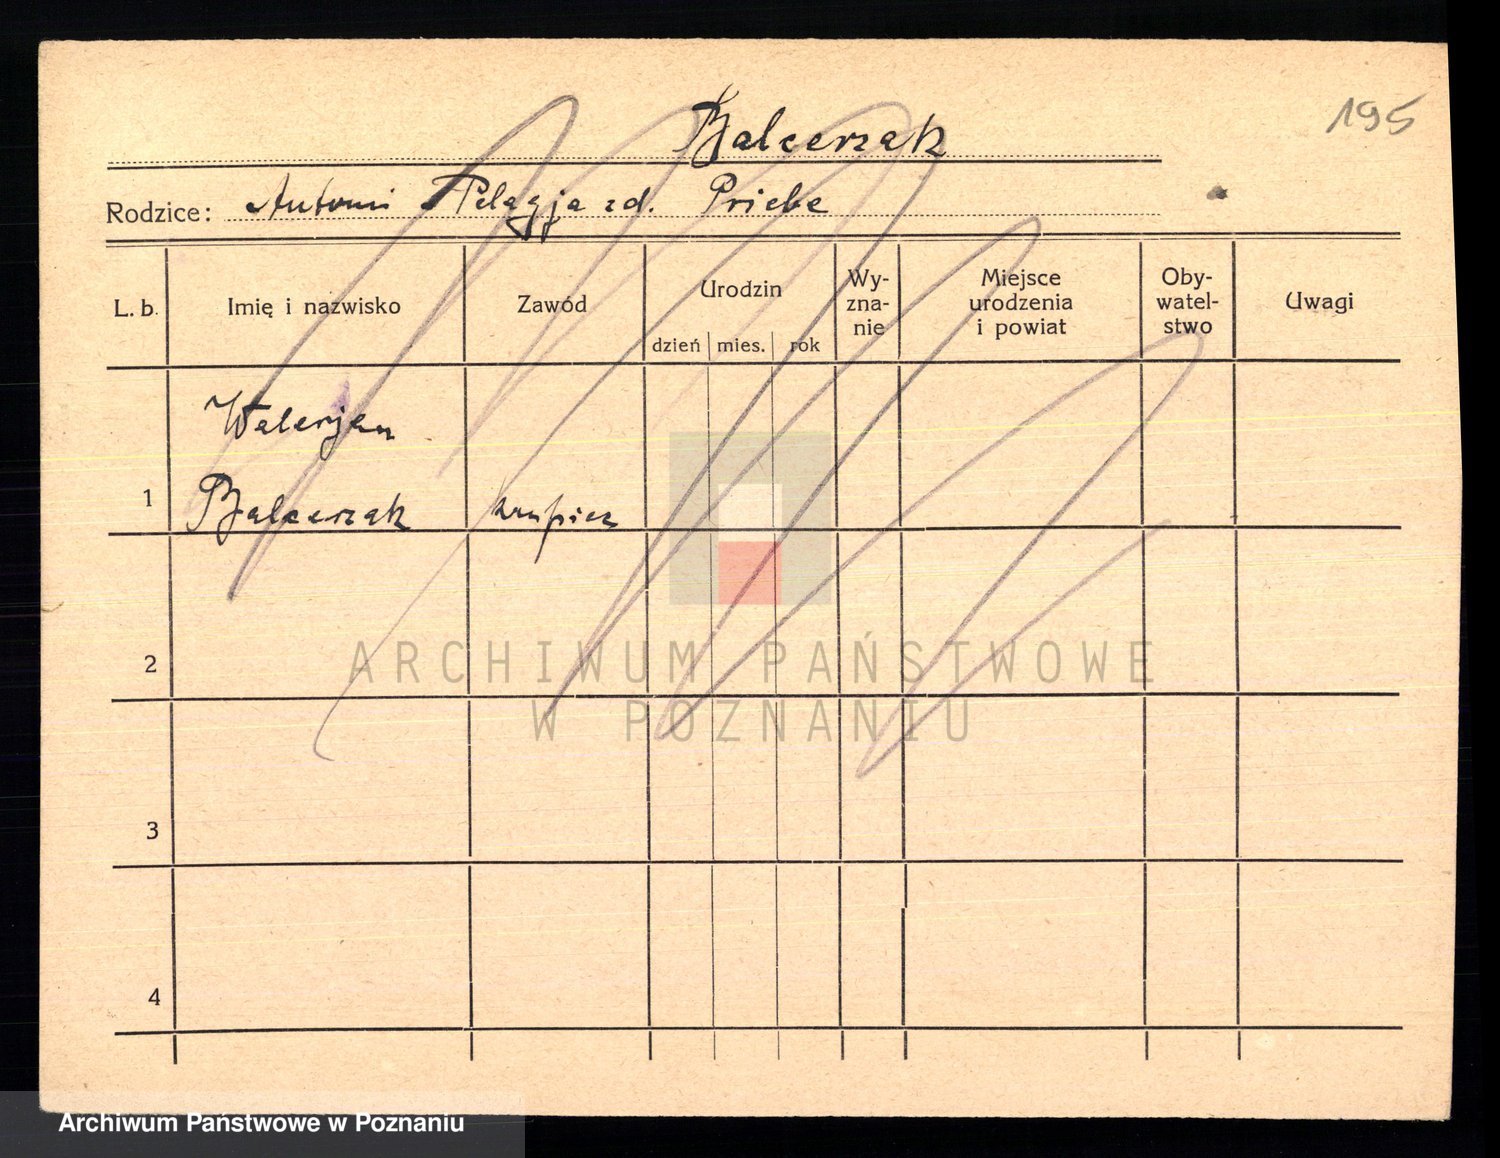 195
Balcerzak
Rodzice: Antoni Pelagja zd. Priebe
L. b.
Imię i nazwisko
Zawód
Urodzin
dzień mies. rok
Wy-
zna-
nie
Miejsce
urodzenia
i powiat
Oby-
watel-
stwo
Uwagi
Walerjan
1 Balcerzak kupiec
2
3
4
ARCHIWUM PAŃSTWOWE
W POZNANIU
Archiwum Państwowe w Poznaniu